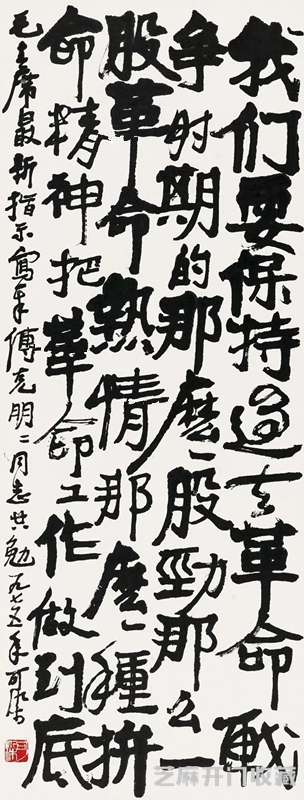 我们要保持過去革命戰
争时期的那麽一股勁那么一
股革命熱情那麽一種拚
命精神把革命工作做到底
毛主席最新指示寫奉傅克明二同志共勉一九七五年可染
芝麻开门收藏